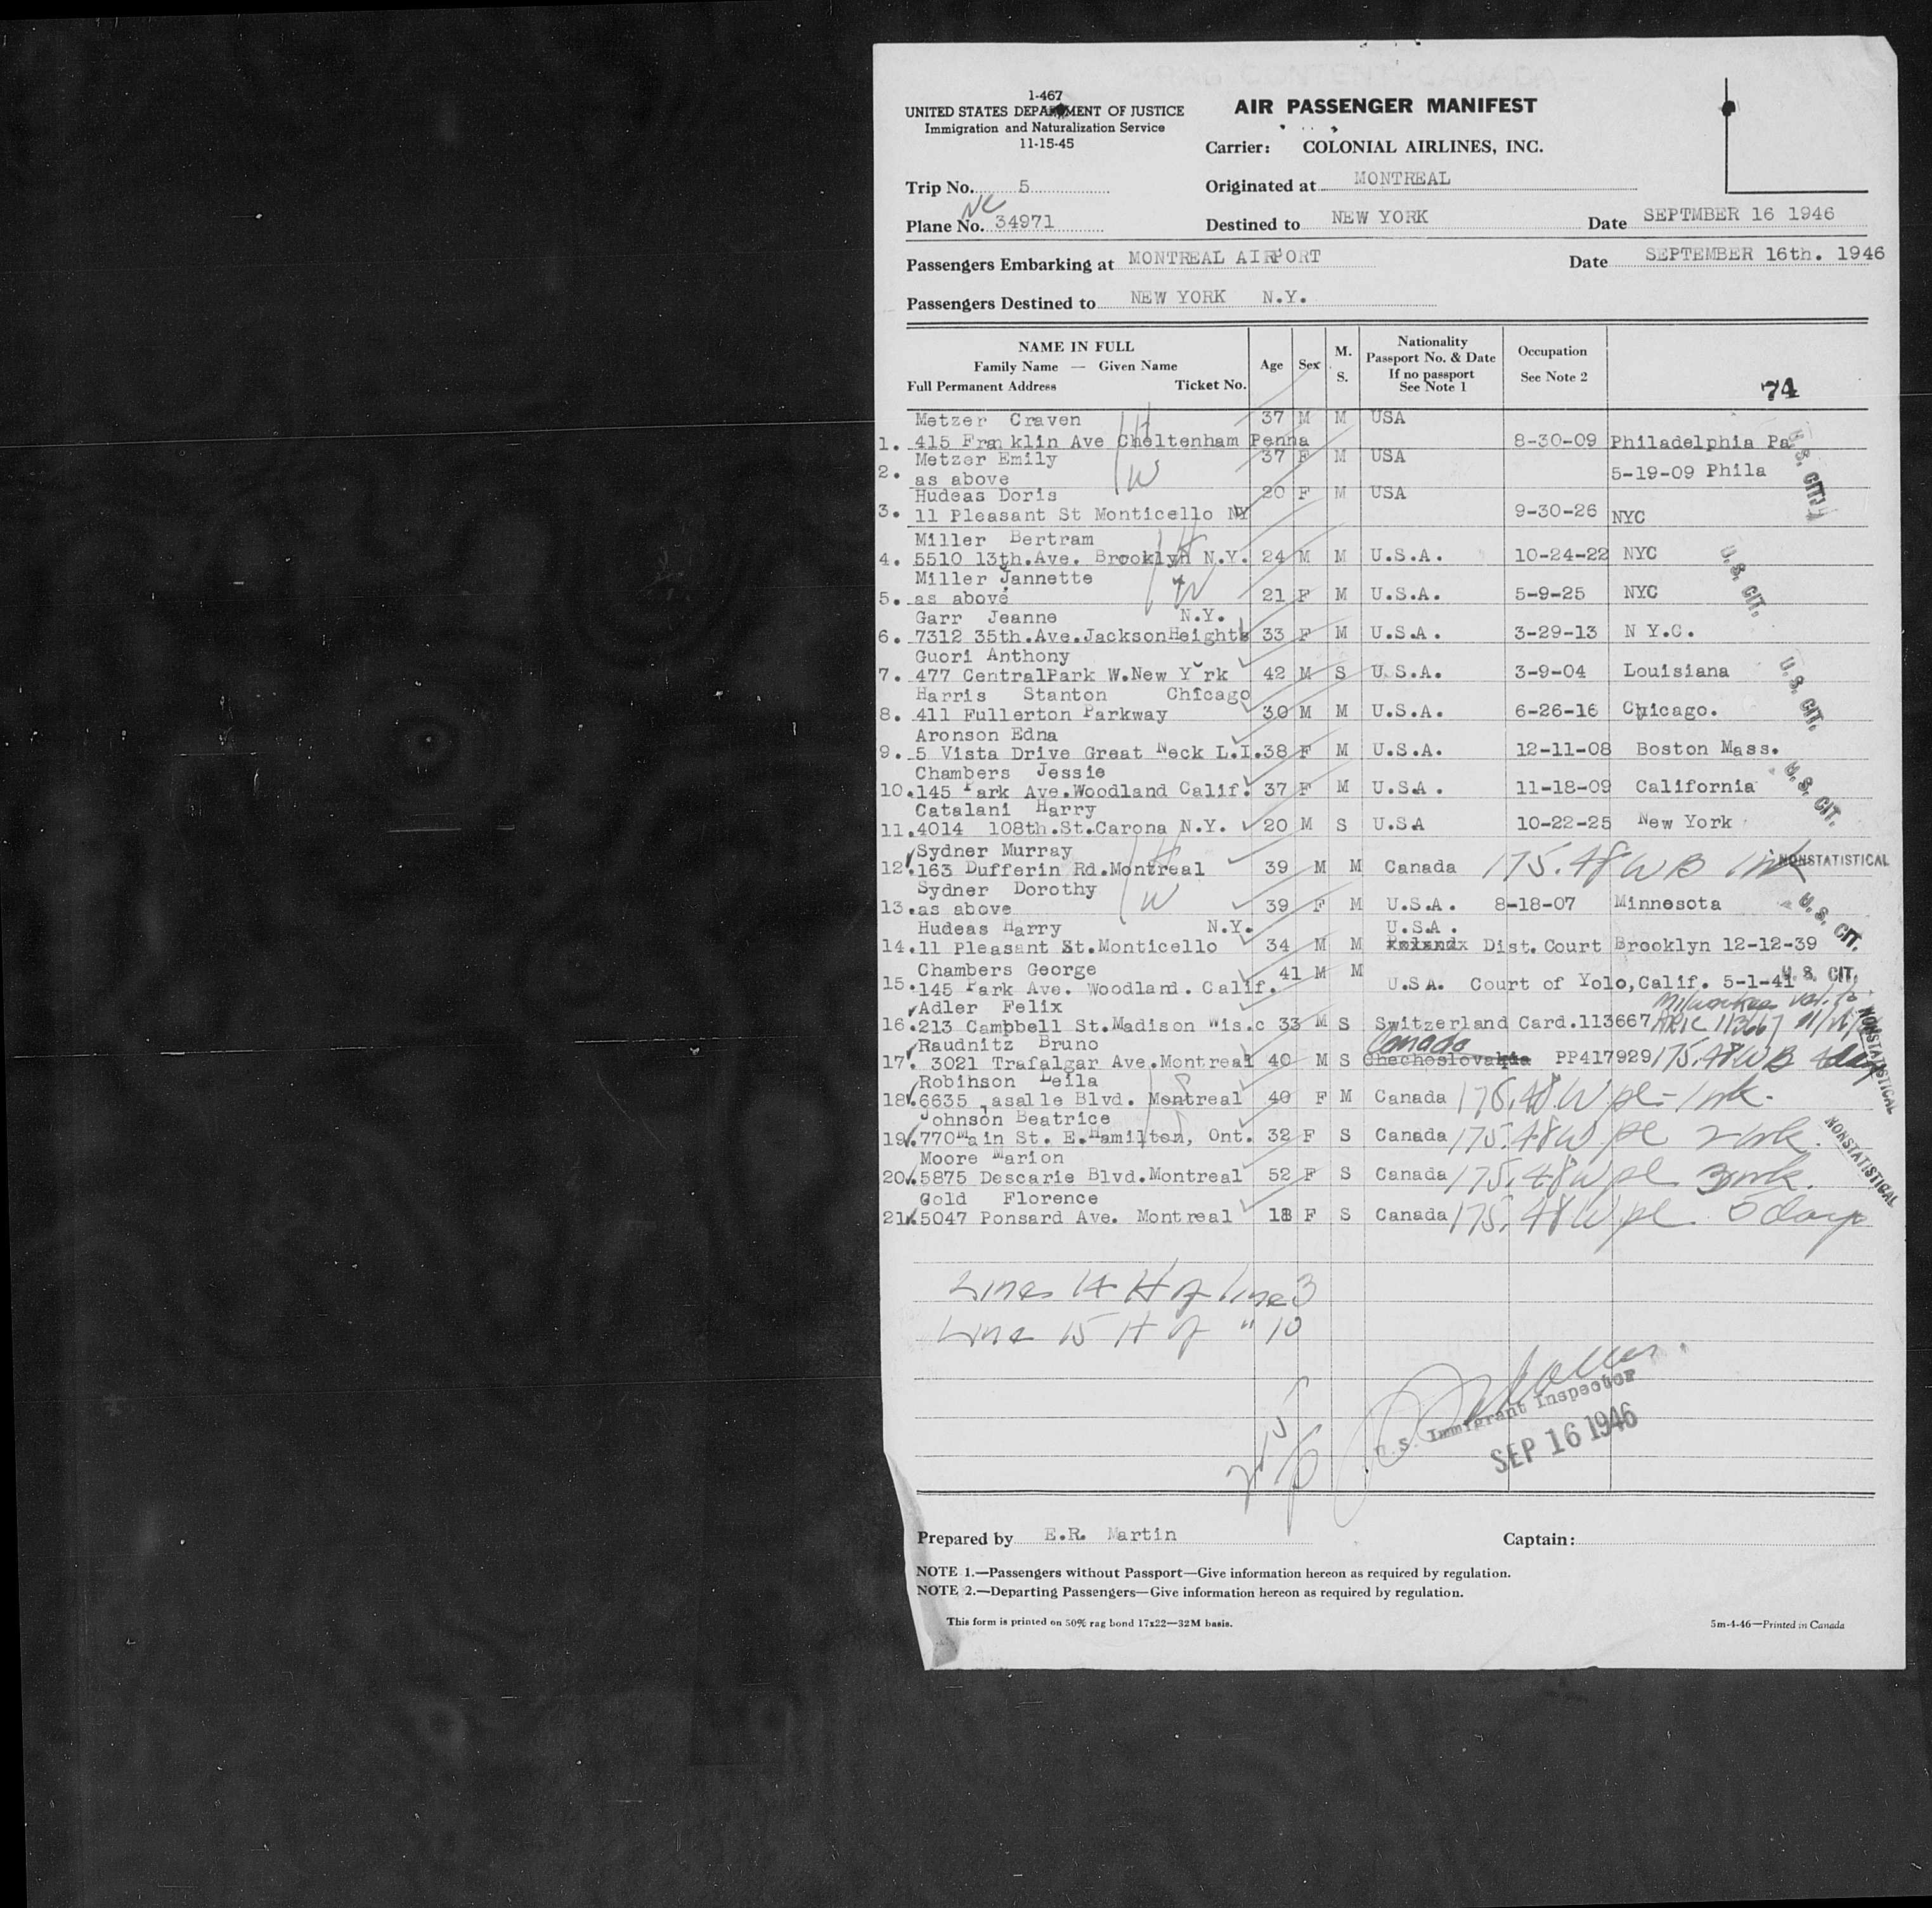 1-467
UNITED STATES DEPARTMENT OF JUSTICE
Immigration and Naturalization Service
11-15-45
AIR PASSENGER MANIFEST
Carrier: COLONIAL AIRLINES, INC.
Trip No. 5
Originated at MONTREAL
NC
Plane No. 34971
Destined to NEW YORK
Date SEPTMBER 16 1946
Passengers Embarking at MONTREAL AIRPORT
Date SEPTEMBER 16th. 1946
Passengers Destined to NEW YORK N.Y.
NAME IN FULL
Family Name — Given Name
Full Permanent Address Ticket No.
Age
Sex
M.
S.
Nationality
Passport No. & Date
If no passport
See Note 1
Occupation
See Note 2
74
Metzer Craven 37 M M USA
1. 415 Franklin Ave Cheltenham Penna 8-30-09 Philadelphia Pa
Metzer Emily 37 F M USA
2. as above 5-19-09 Phila
Hudeas Doris 20 F M USA
3. 11 Pleasant St Monticello NY 9-30-26 NYC
U.S. CIT.
Miller Bertram
4. 5510 13th.Ave. Brooklyn N.Y. 24 M M U.S.A. 10-24-22 NYC
Miller Jannette
5. as above 21 F M U.S.A. 5-9-25 NYC
U.S. CIT.
Garr Jeanne N.Y.
6. 7312 35th.Ave.JacksonHeights 33 F M U.S.A. 3-29-13 N Y.C.
Guori Anthony
7. 477 CentralPark W.New York 42 M S U.S.A. 3-9-04 Louisiana
Harris Stanton Chicago
8. 411 Fullerton Parkway 30 M M U.S.A. 6-26-16 Chicago.
U.S. CIT.
Aronson Edna
9. 5 Vista Drive Great Neck L.I. 38 F M U.S.A. 12-11-08 Boston Mass.
Chambers Jessie
10. 145 Park Ave.Woodland Calif. 37 F M U.S.A. 11-18-09 California
Catalani Harry
11. 4014 108th.St.Carona N.Y. 20 M S U.S.A 10-22-25 New York
U.S. CIT.
Sydner Murray
12. 163 Dufferin Rd.Montreal 39 M M Canada 175.48 W B 1 wk NONSTATISTICAL
Sydner Dorothy
13. as above 39 F M U.S.A. 8-18-07 Minnesota
U.S. CIT.
Hudeas Harry N.Y. U.S.A.
14. 11 Pleasant St.Monticello 34 M M Dist. Court Brooklyn 12-12-39
Chambers George 41 M M
15. 145 Park Ave. Woodland. Calif. U.S.A. Court of Yolo,Calif. 5-1-41
U.S. CIT.
Adler Felix Milwaukee
16. 213 Campbell St.Madison Wis.c 33 M S Switzerland Card.113667 113667
NONSTATISTICAL
Raudnitz Bruno Canada
17. 3021 Trafalgar Ave.Montreal 40 M S Chechoslovakia PP417929 175.48 W B
Robihson Leila
18. 6635 asalle Blvd. Montreal 40 F M Canada 175.48 W pl - 1 wk.
Johnson Beatrice
19. 770 Main St. E.Hamilton, Ont. 32 F S Canada 175.48 W pl 2 wk.
Moore Marion
20. 5875 Descarie Blvd.Montreal 52 F S Canada 175.48 W pl 3 wk.
NONSTATISTICAL
Gold Florence
21. 5047 Ponsard Ave. Montreal 18 F S Canada 175.48 W pl. 5 days
Lines 14 H of line 3
Line 15 H of " 10
U.S. Immigrant Inspector
SEP 16 1946
Prepared by E.R. Martin
Captain:
NOTE 1.—Passengers without Passport—Give information hereon as required by regulation.
NOTE 2.—Departing Passengers—Give information hereon as required by regulation.
This form is printed on 50% rag bond 17x22—32M basis.
5m-4-46—Printed in Canada